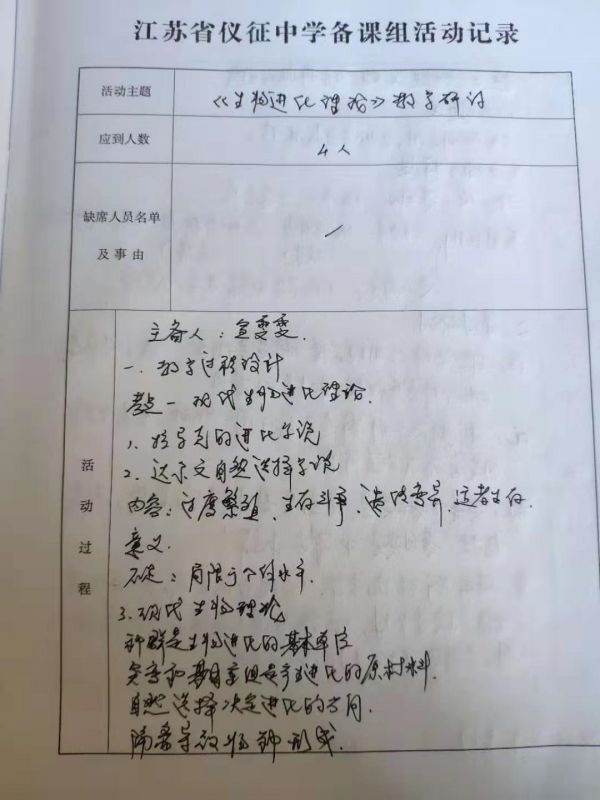 江苏省仪征中学备课组活动记录
活动主题
《生物进化理论》教学研讨
应到人数
4人
缺席人员名单
及事由
/
活动过程
主备人：宣雯雯.
一. 教学过程设计
考点一 现代生物进化理论.
1. 拉马克的进化学说
2. 达尔文自然选择学说
内容：过度繁殖，生存斗争，遗传变异，适者生存.
意义.
不足：局限于个体水平.
3. 现代生物理论
种群是生物进化的基本单位
突变和基因重组是产生进化的原材料.
自然选择决定进化的方向.
隔离导致物种形成.